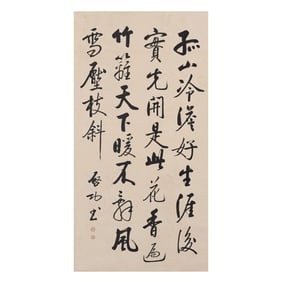 孤山冷淡好生涯後
實先開是此花香遍
竹籬天下暖不辭風
雪壓枝斜
啓功書